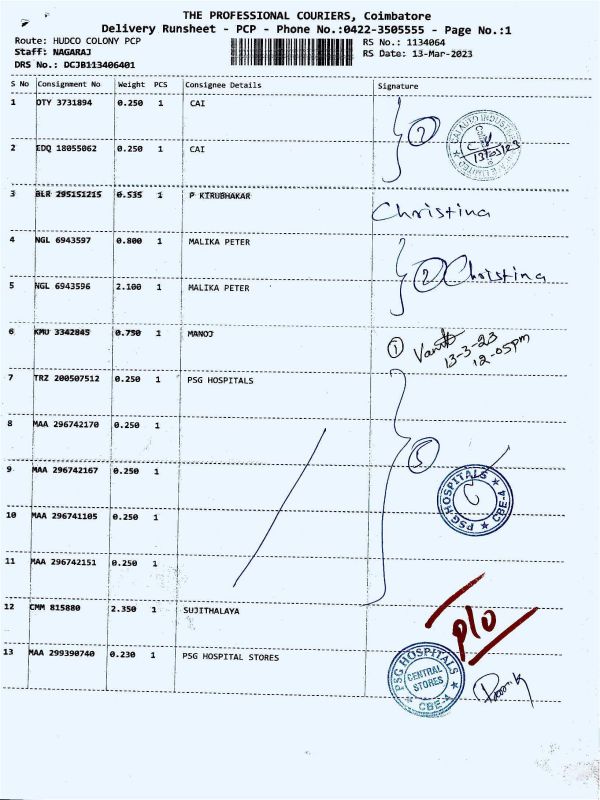 THE PROFESSIONAL COURIERS, Coimbatore
Delivery Runsheet - PCP - Phone No.:0422-3505555 - Page No.:1
Route: HUDCO COLONY PCP RS No.: 1134064
Staff: NAGARAJ RS Date: 13-Mar-2023
DRS No.: DCJB113406401
S No Consignment No Weight PCS Consignee Details Signature
1 OTY 3731894 0.250 1 CAI
2
2 EDQ 18055062 0.250 1 CAI
13/03/23
3 BLR 295151215 0.535 1 P KIRUBHAKAR Christina
4 NGL 6943597 0.800 1 MALIKA PETER
2 Christina
5 NGL 6943596 2.100 1 MALIKA PETER
6 KMU 3342845 0.750 1 MANOJ
1 13-3-23
12-05pm
7 TRZ 200507512 0.250 1 PSG HOSPITALS
8 MAA 296742170 0.250 1
5
9 MAA 296742167 0.250 1
PSG HOSPITALS CBE-4
10 MAA 296741105 0.250 1
11 MAA 296742151 0.250 1
12 CMM 815880 2.350 1 SUJITHALAYA
P/O
13 MAA 299390740 0.230 1 PSG HOSPITAL STORES
PSG HOSPITALS
CENTRAL
STORES
CBE-4